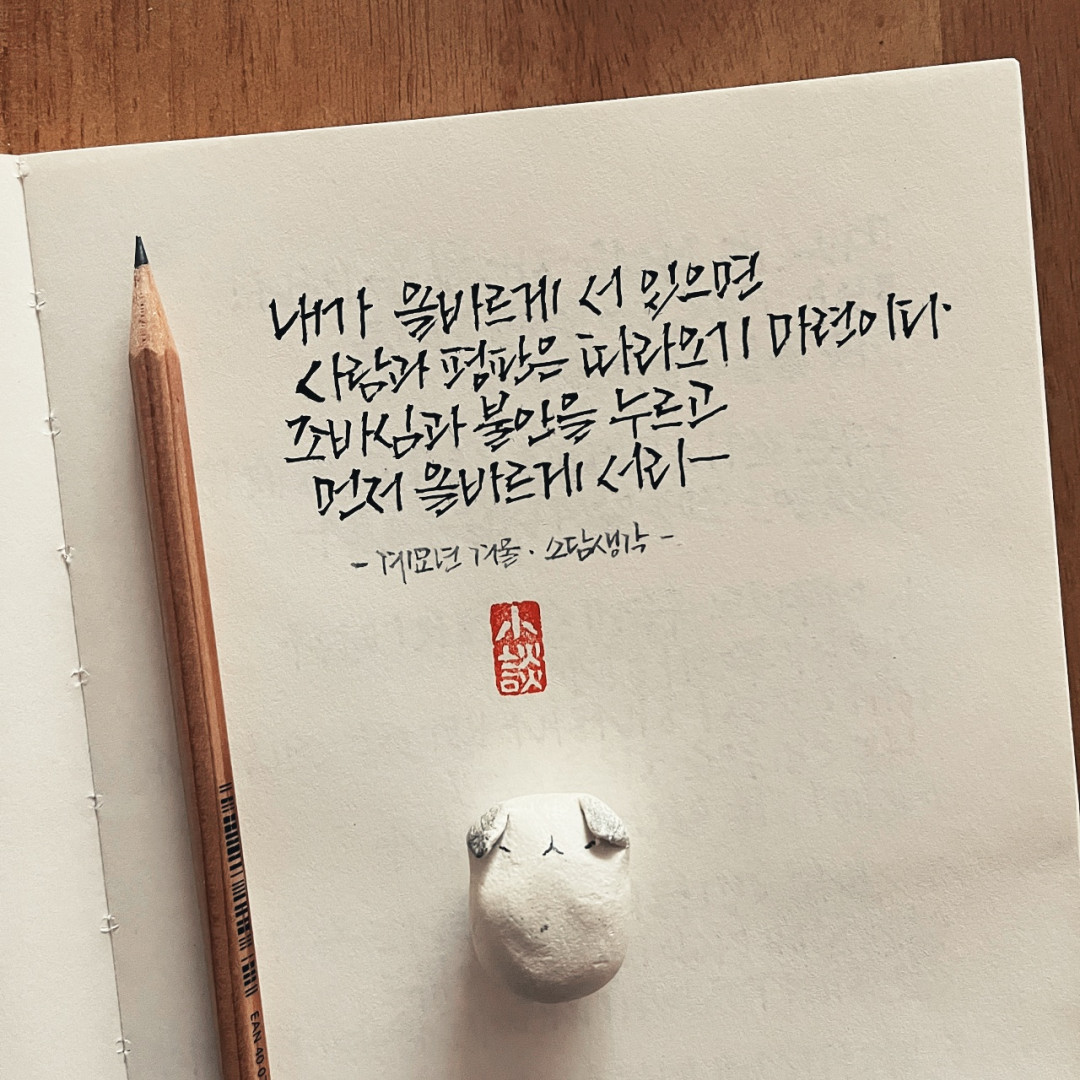 내가 올바르게 서 있으면
사람과 평판은 따라오기 마련이다.
조바심과 불안을 누르고
먼저 올바르게 서리—
- 계묘년 겨울 · 소담생각 -
小
談
EAN 40-0